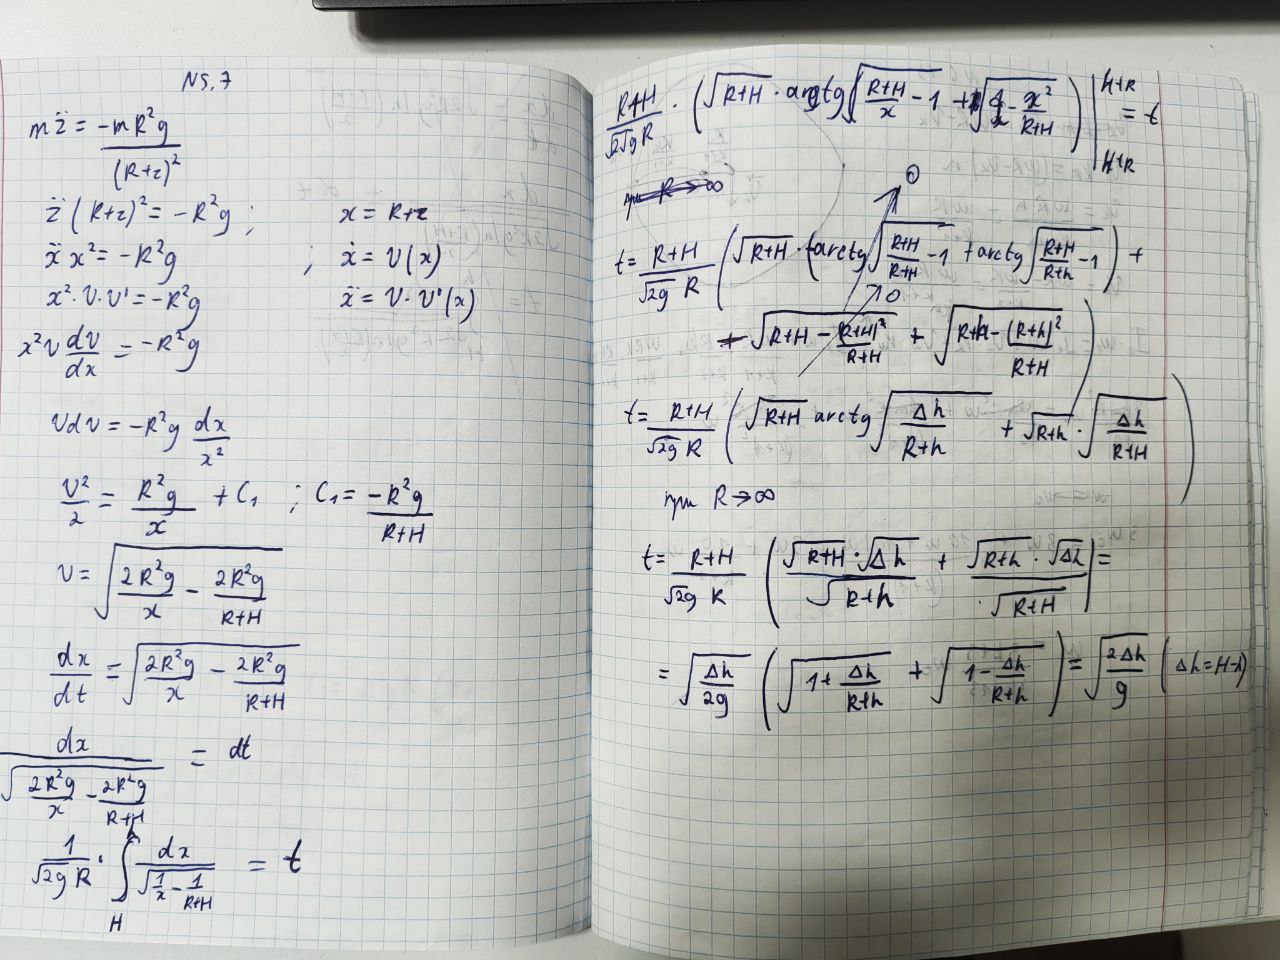 N5.7
mz̈ = -mR²g / (R+z)²
z̈ (R+z)² = -R²g ; x = R+z
ẍ x² = -R²g ; ẋ = V(x)
x²·V·V' = -R²g ẍ = V·V'(x)
x²V dV/dx = -R²g
VdV = -R²g dx/x²
V²/2 = R²g/x + C₁ ; C₁ = -R²g/(R+H)
V = √(2R²g/x - 2R²g/(R+H))
dx/dt = √(2R²g/x - 2R²g/(R+H))
dx / √(2R²g/x - 2R²g/(R+H)) = dt
1/(√2g R) · ∫_H^h dx / √(1/x - 1/(R+H)) = t
(R+H)/(√2g R) · (√(R+H) · arctg √((R+H)/x - 1) + √(x - x²/(R+H))) |_{H+R}^{h+R} = t
при R→∞
0
t = (R+H)/(√2g R) (√(R+H) · (arctg √((R+H)/(R+H) - 1) + arctg √((R+H)/(R+h) - 1) ) +
0
+ √(R+H - (R+H)²/(R+H)) + √(R+h - (R+h)²/(R+H)) )
t = (R+H)/(√2g R) (√(R+H) arctg √(Δh/(R+h)) + √(R+h) · √(Δh/(R+H)) )
при R→∞
t = (R+H)/(√2g R) ( √(R+H)·√Δh / √(R+h) + √(R+h)·√Δh / √(R+H) ) =
= √(Δh/2g) ( √(1 + Δh/(R+h)) + √(1 - Δh/(R+h)) ) = √(2Δh/g) ( Δh = H-h)